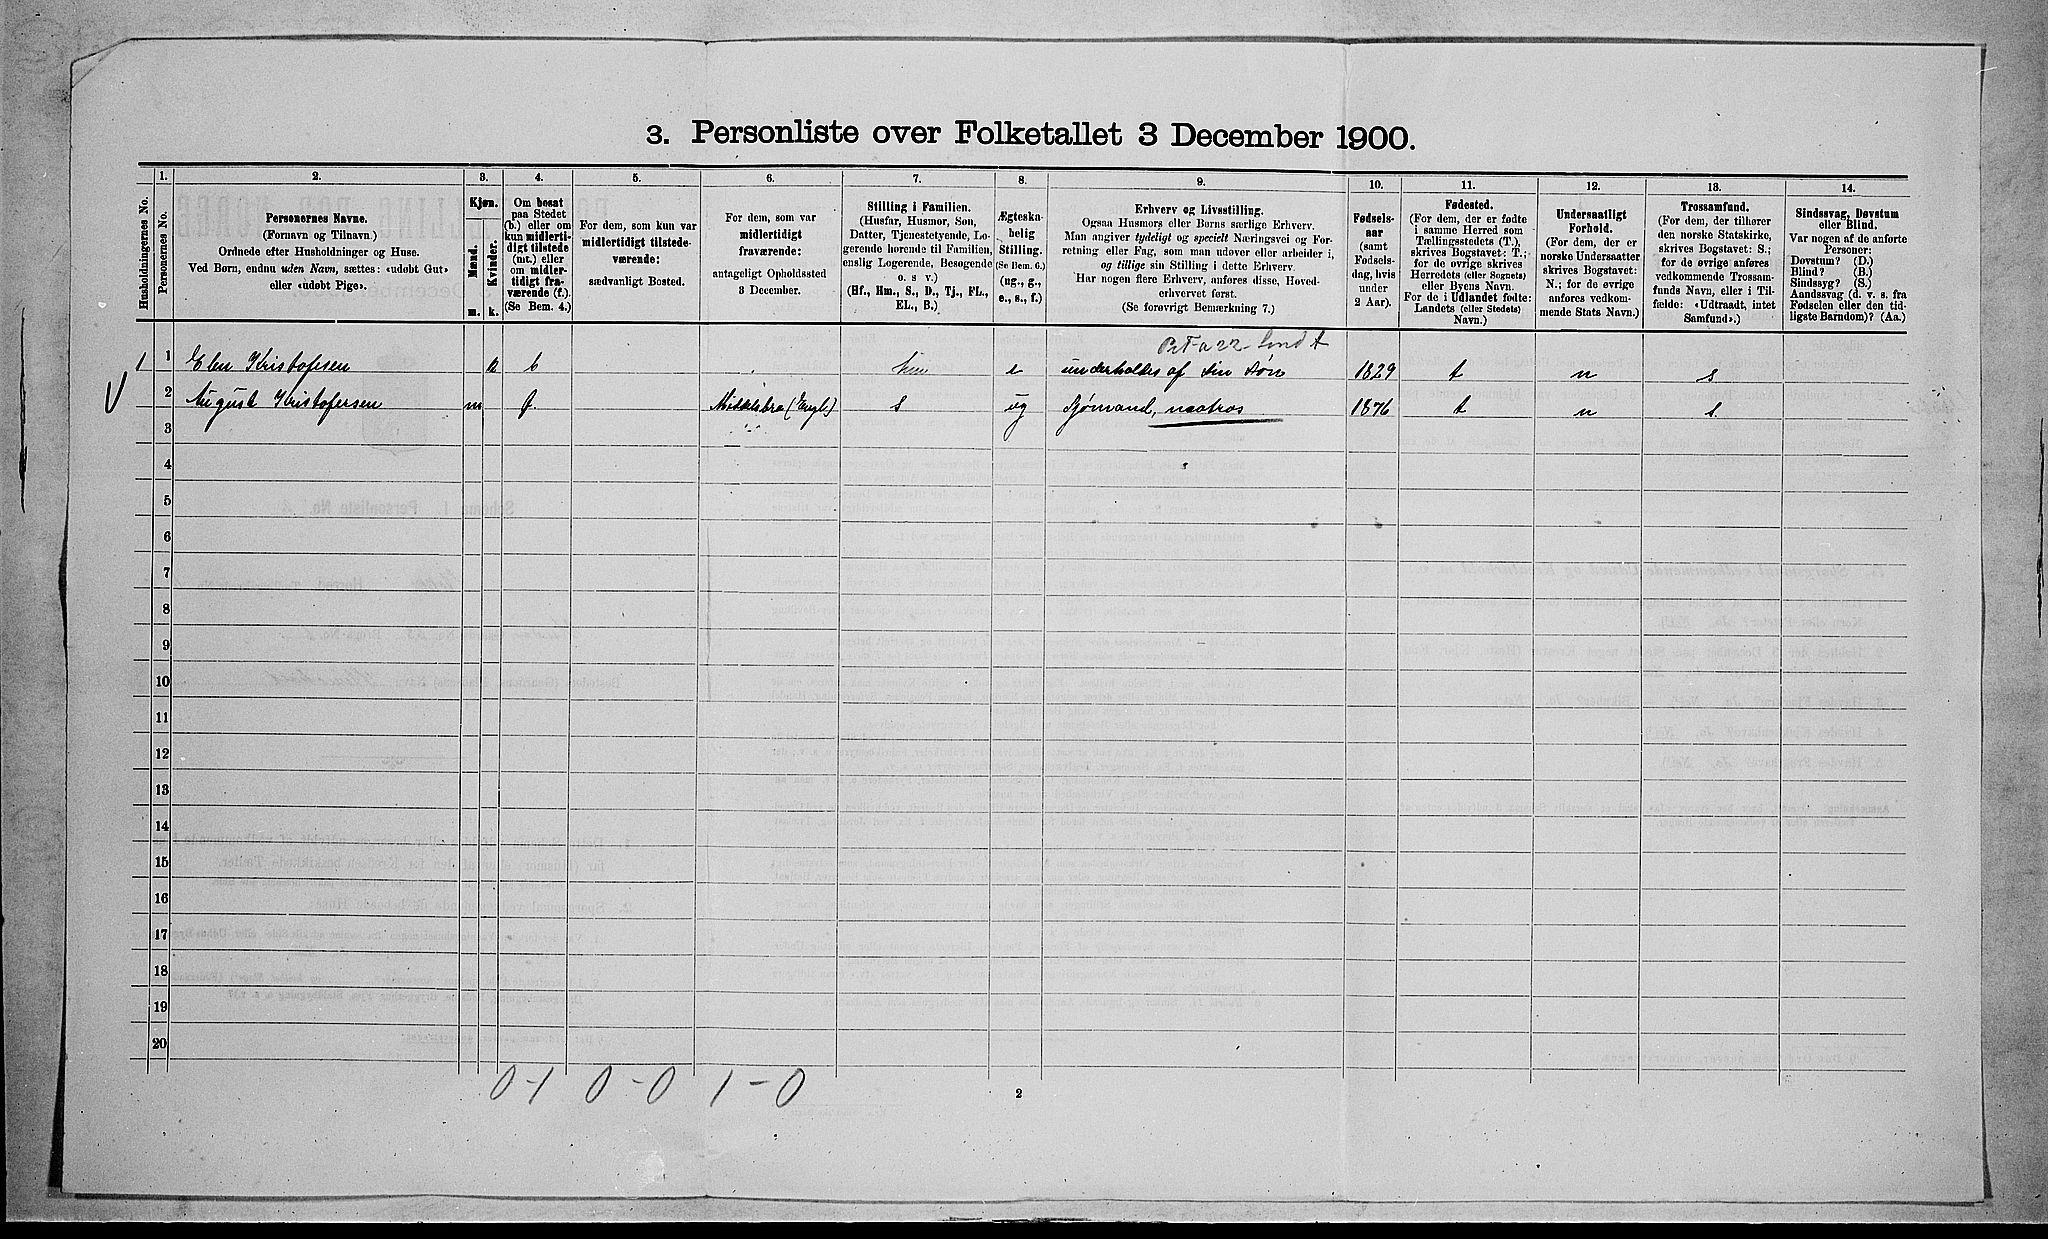 3. Personliste over Folketallet 3 December 1900.
Husholdningernes No.
1.
Personernes No.
2.
Personernes Navne.
(Fornavn og Tilnavn.)
Ordnede efter Husholdninger og Huse.
Ved Børn, endnu uden Navn, sættes: «udøbt Gut»
eller «udøbt Pige».
3.
Kjøn.
Mænd.
Kvinder.
m.
k.
4.
Om bosat
paa Stedet
(b.) eller om
kun midlerti-
digt tilstede
(mt.) eller
om midler-
tidigt fra-
værende (f.).
(Se Bem. 4.)
5.
For dem, som kun var
midlertidigt tilstede-
værende:
sædvanligt Bosted.
6.
For dem, som var
midlertidigt
fraværende:
antageligt Opholdssted
3 December.
7.
Stilling i Familien.
(Husfar, Husmor, Søn,
Datter, Tjenestetyende, Lo-
gerende hørende til Familien,
enslig Logerende, Besøgende
o. s v.)
(Hf., Hm., S., D., Tj., FL.,
EL., B.)
8.
Ægteska-
belig
Stilling.
(Se Bem. 6.)
(ug., g.,
e., s., f.)
9.
Erhverv og Livsstilling.
Ogsaa Husmors eller Børns særlige Erhverv.
Man angiver tydeligt og specielt Næringsvei og For-
retning eller Fag, som man udover eller arbeider i,
og tillige sin Stilling i dette Erhverv.
Har nogen flere Erhverv, anføres disse, Hoved-
erhvervet først.
(Se forøvrigt Bemærkning 7.)
10.
Fødsels-
aar
(samt
Fødsels-
dag, hvis
under
2 Aar).
11.
Fødested.
(For dem, der er fødte
i samme Herred som
Tællingsstedets (T.),
skrives Bogstavet: T.;
for de øvrige skrives
Herredets (eller Sognets)
eller Byens Navn.
For de i Udlandet fødte:
Landets (eller Stedets)
Navn.)
12.
Undersaatligt
Forhold.
(For dem, der er
norske Undersaatter
skrives Bogstavet:
N.; for de øvrige
anføres vedkom-
mende Stats Navn.)
13.
Trossamfund.
(For dem, der tilhører
den norske Statskirke,
skrives Bogstavet: S.;
for de øvrige anføres
vedkommende Trossam-
funds Navn, eller i Til-
fælde: «Udtraadt, intet
Samfund».)
14.
Sindssvag, Døvstum
eller Blind.
Var nogen af de anførte
Personer:
Døvstum? (D.)
Blind? (B.)
Sindssyg? (S.)
Aandssvag (d. v. s. fra
Fødselen eller den tid-
ligste Barndom)? (Aa.)
1 1 Elen Kristofersen k b e underholdes af sin Søn 1829 t n s
2 August Kristofersen m f. Middelsbro (Engl.) s ug Sjømand, matros 1876 t n s.
3
4
5
6
7
8
9
10
11
12
13
14
15
16
17
18
19
20
0-1 0-0 1-0
2